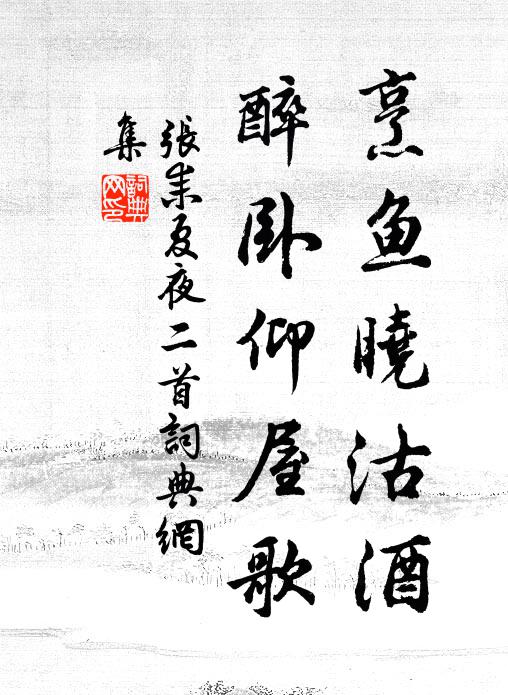 烹魚曉沽酒
醉臥仰屋歌
張耒夏夜二首詞典網
集
詞典
网印